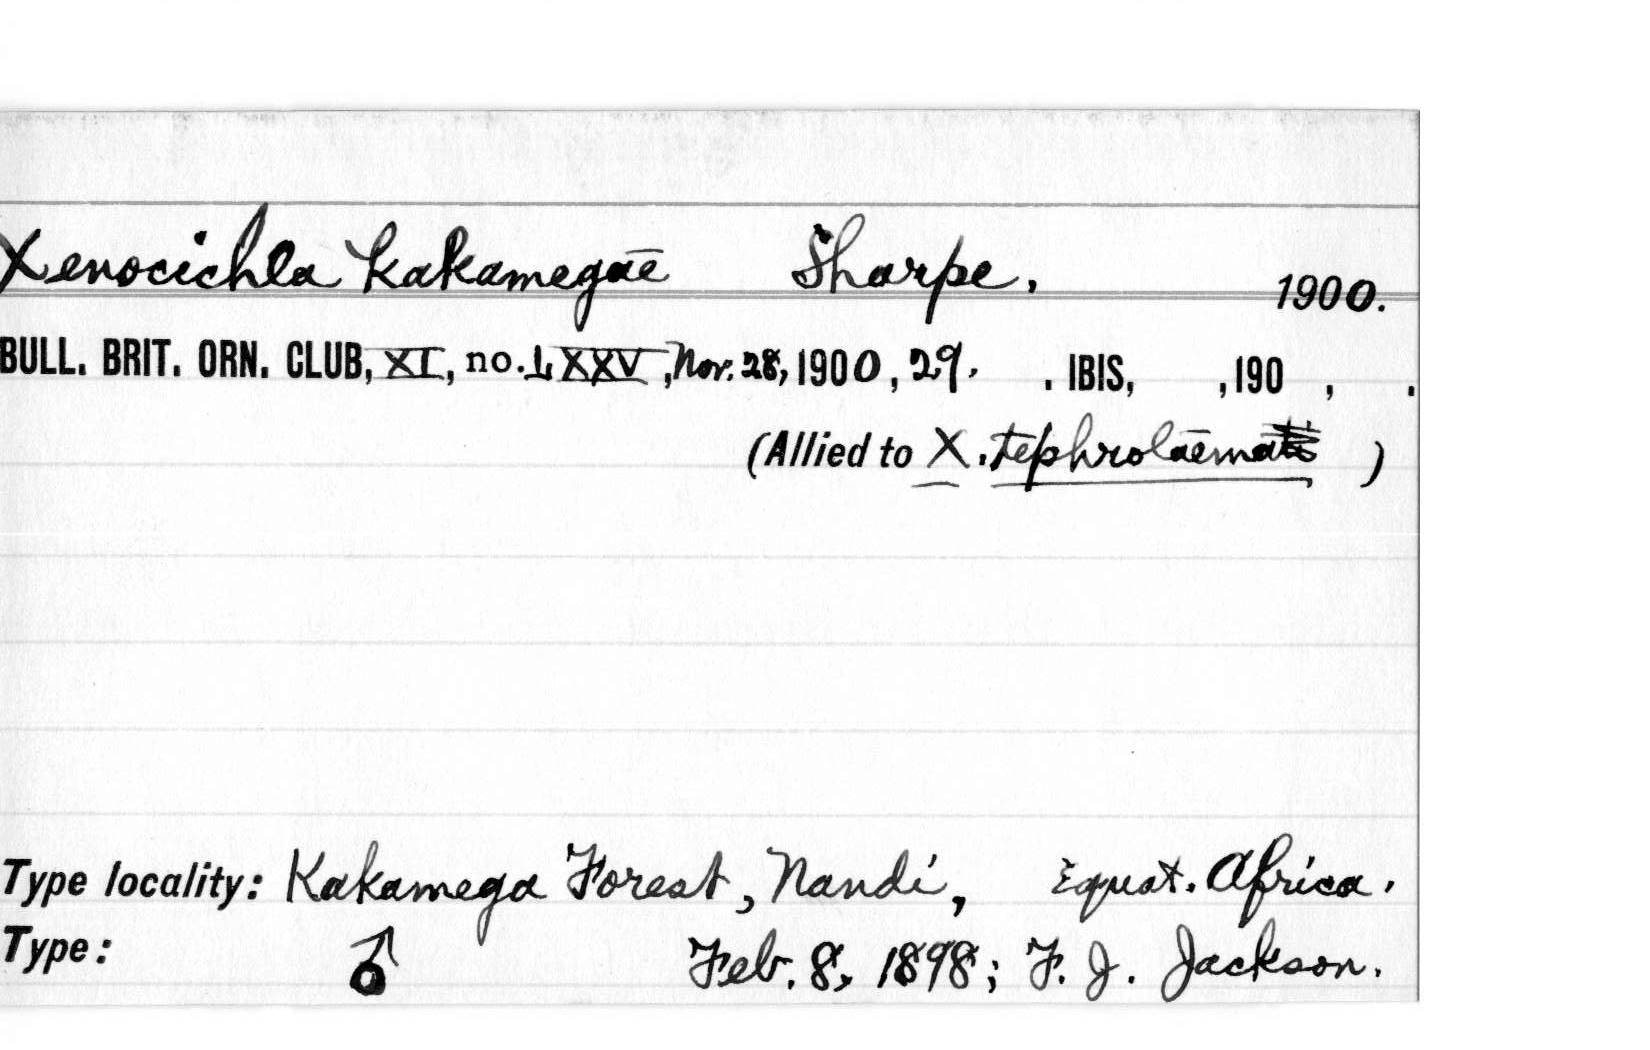 Xenocichla kakamegae Sharpe, 1900.
BULL. BRIT. ORN. CLUB, XI, no. LXXV, Nov. 28, 1900, 29. . IBIS, , 190 , .
(Allied to X. tephrolaema )
Type locality: Kakamega Forest, Nandi, Equat. Africa.
Type: ♂ Feb. 8, 1898; F. J. Jackson.